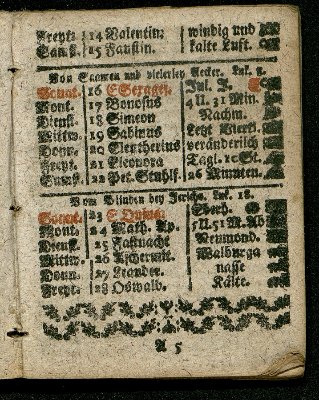 Freyt. 14 Valentin: windig und
Samst. 15 Faustin. kalte Luft.
Von Saamen und vielerley Aecker. Luc. 8.
Sonnt. 16 E Serages. Jul. J. C
Mont. 17 Donosus 4 U. 31 Min.
Dienst. 18 Simeon Nachm.
Mittw. 19 Sabinus Letzt Viertl.
Donn. 20 Eleutherius veränderlich
Freyt. 21 Eleonora Tagl. 10 St.
Samst. 22 Pet. Stuhlf. 26 Minuten.
Vom Blinden bey Jericho. Luc. 18.
Sonnt. 23 E Quinq.
Mont. 24 Math. Ap. 5 U. 51 M. Ab
Dienst. 25 Faßnacht Neumond.
Mittw. 26 Ascherm. Walburga
Donn. 27 Leander. nasse
Freyt. 28 Oswald. Kälte.
A 5